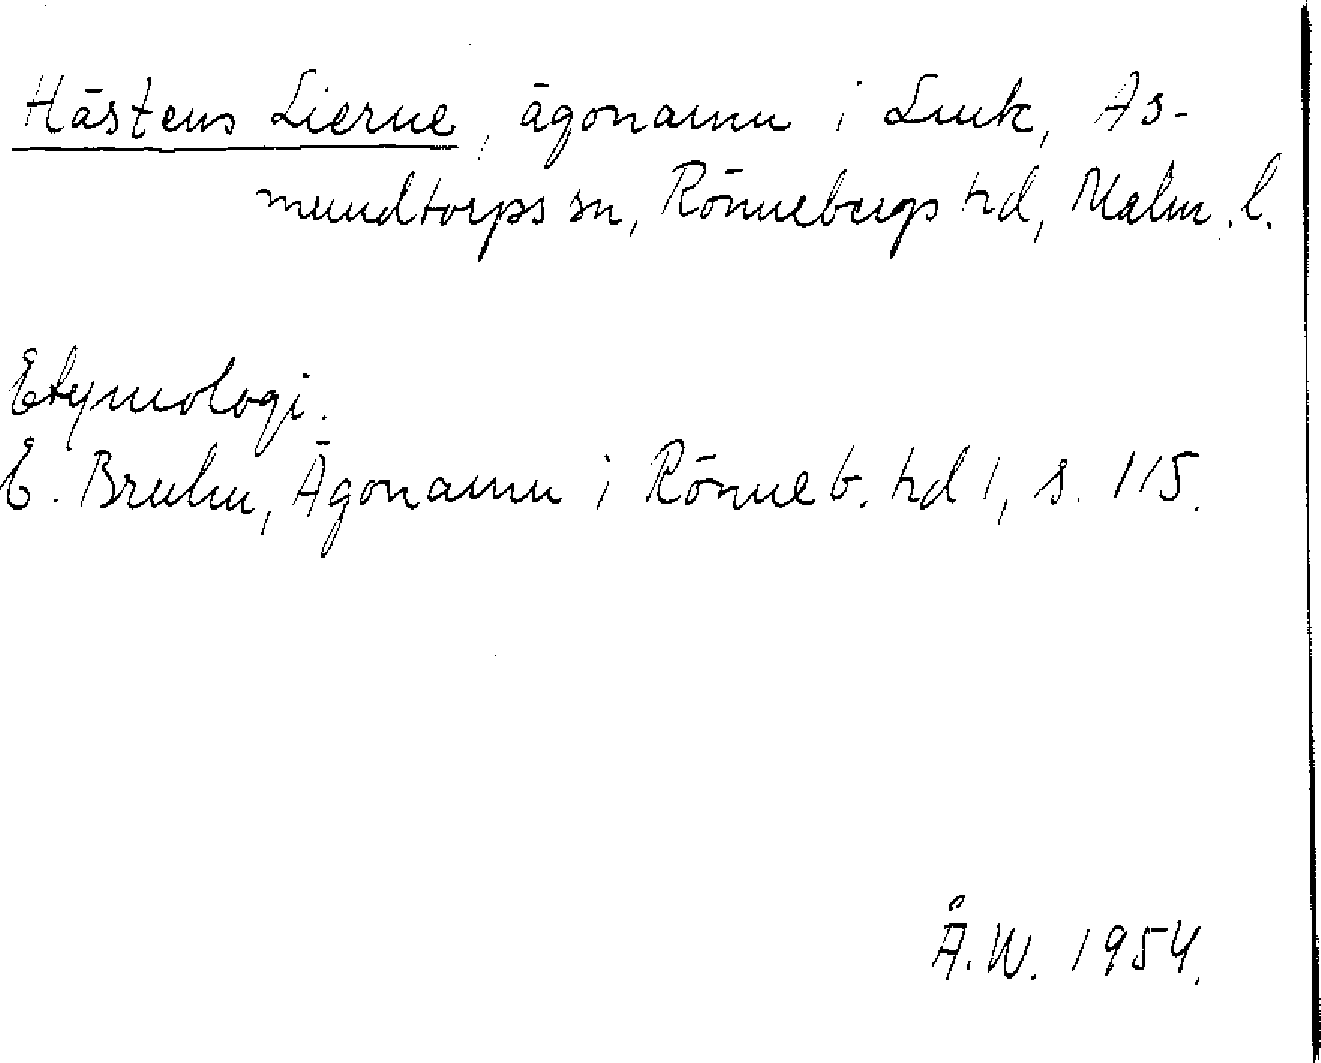 Hästens Lierne, ägonamn i Lunk, As-
mundtorps sn, Rönnebergs hd, Malm. l.
Etymologi.
E. Bruhn, Ägonamn i Rönneb. hd 1, s. 115.
Å.W. 1954.